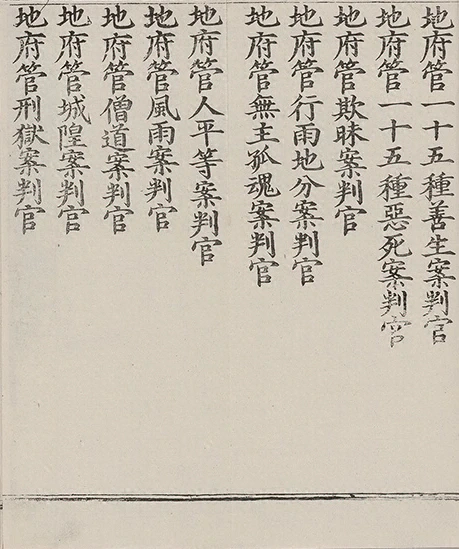 地府管一十五種善生案判官
地府管一十五種惡死案判官
地府管欺昧案判官
地府管行雨地分案判官
地府管無主孤魂案判官
地府管人平等案判官
地府管風雨案判官
地府管僧道案判官
地府管城隍案判官
地府管刑獄案判官